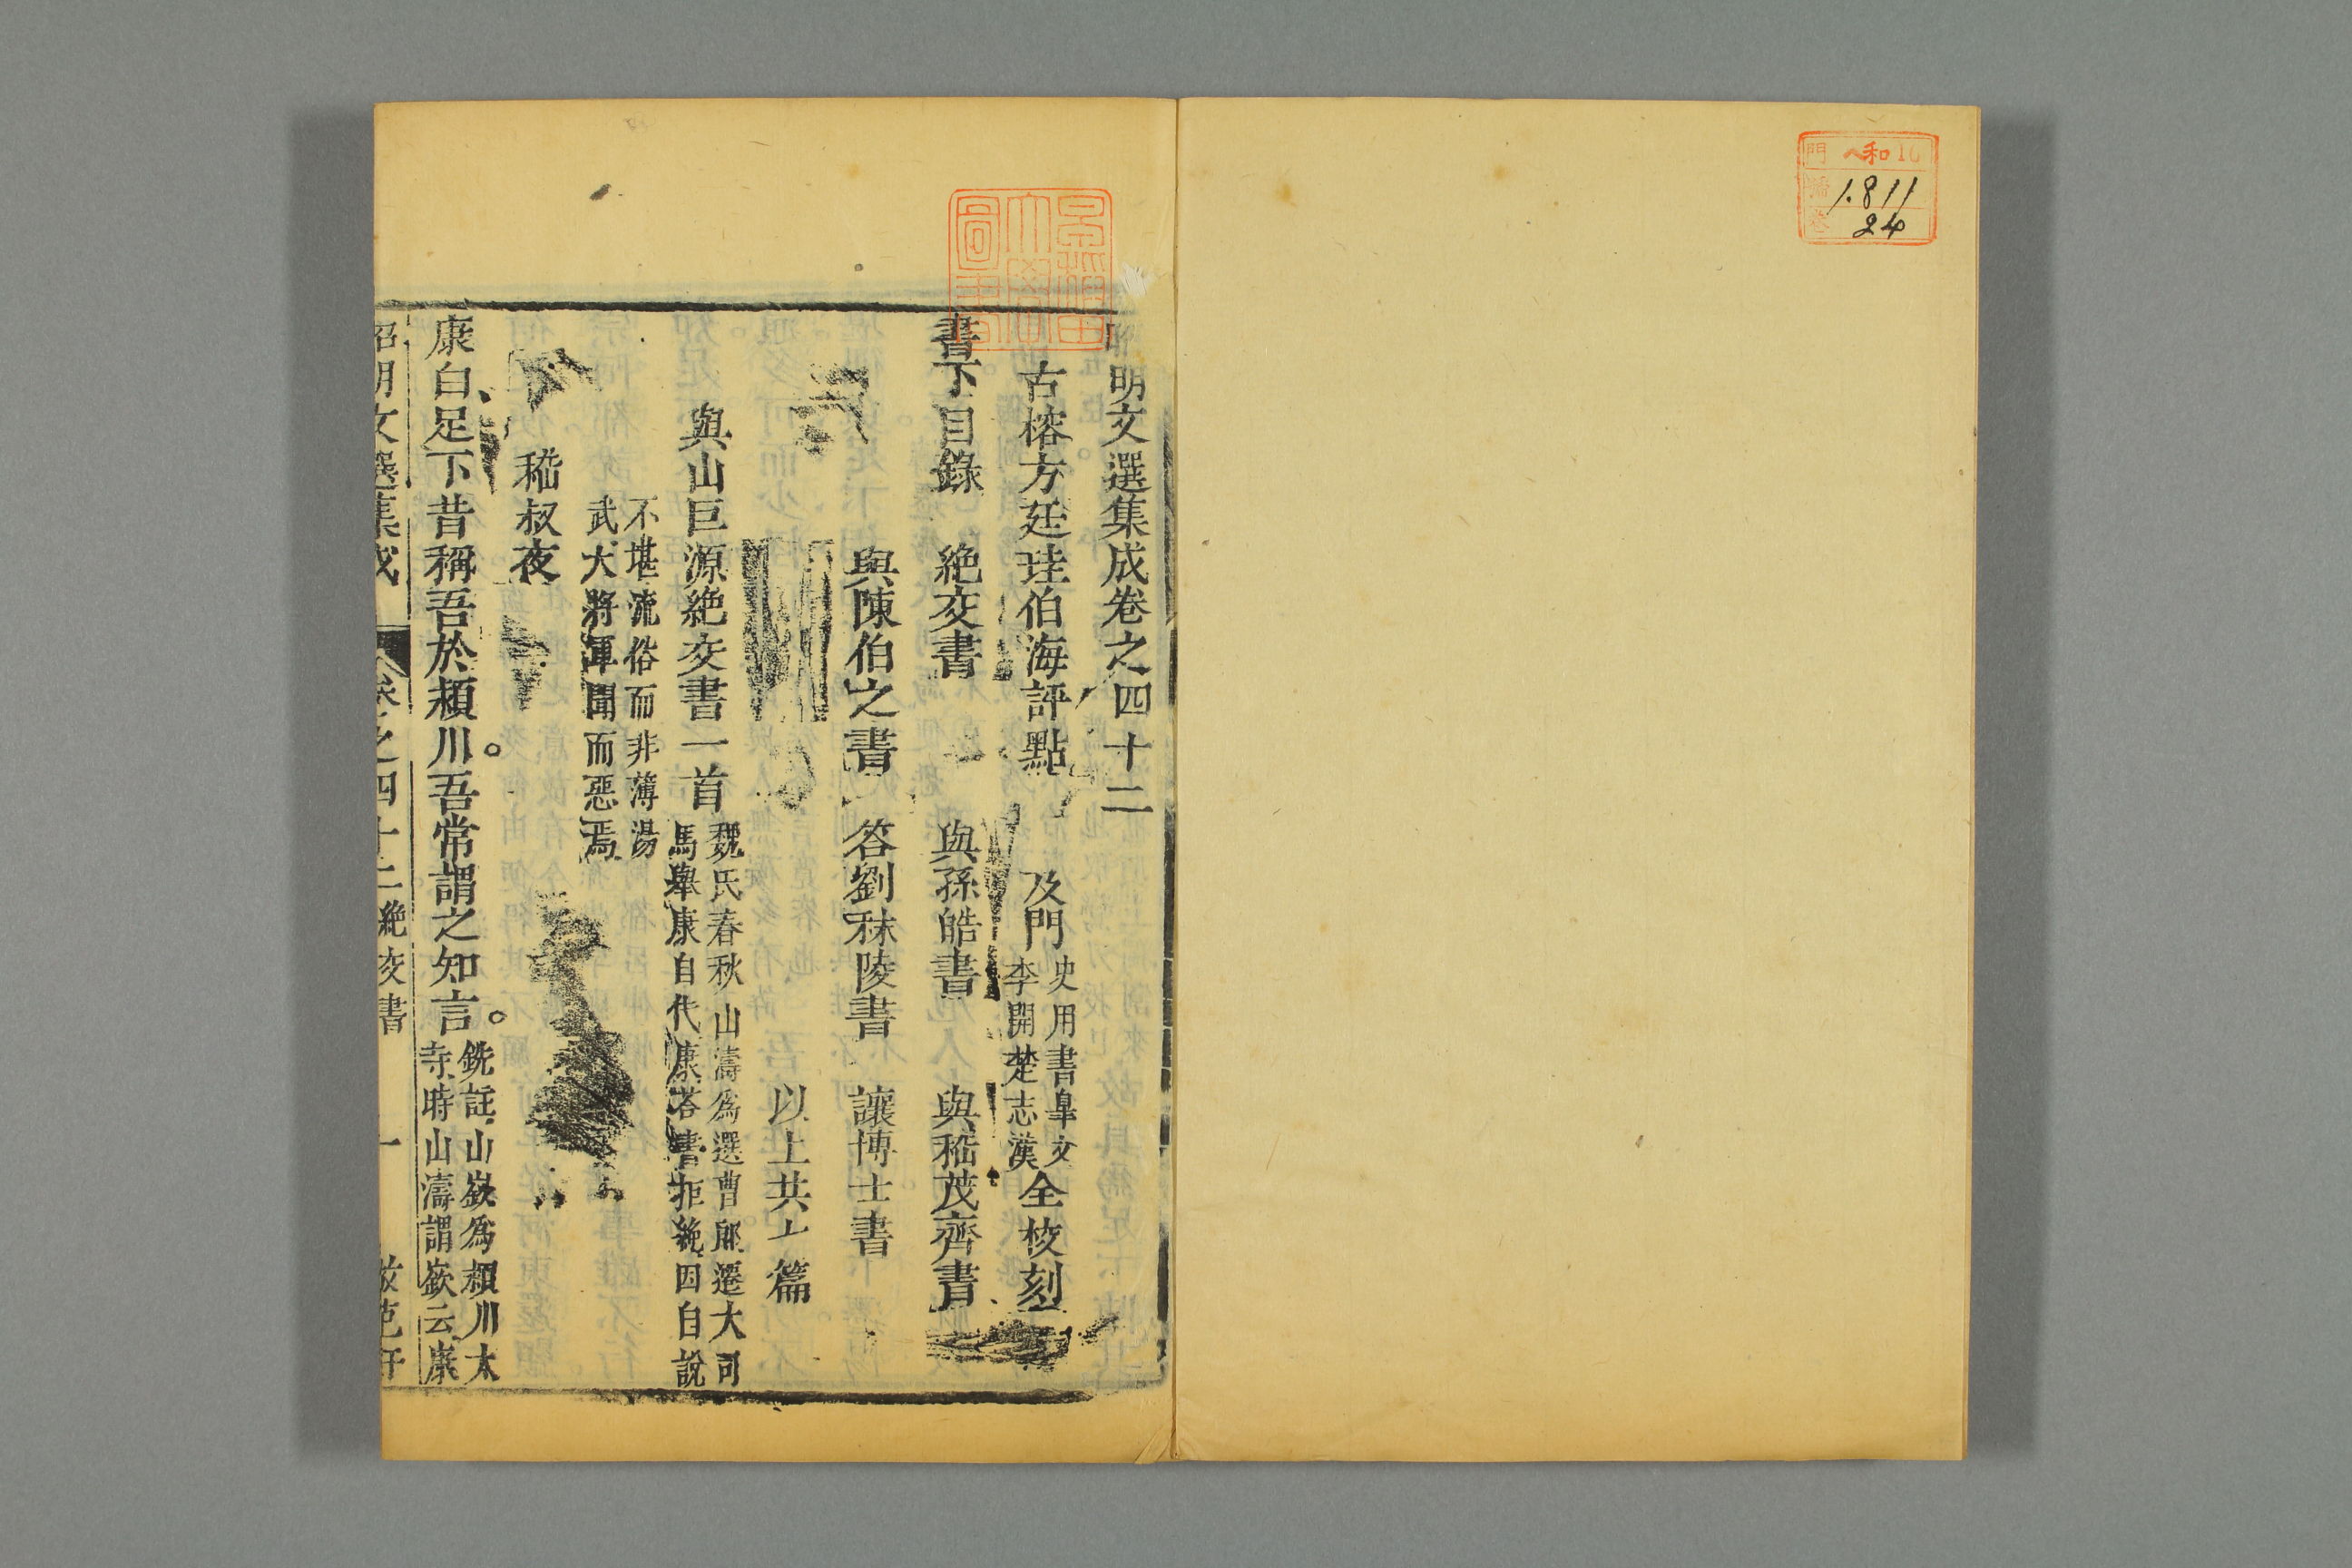 門 和
1.811
24
明文選集成卷之四十二
古榕方廷珪伯海評點 及門 史用書皐文 李開楚志漢 全校刻
書下目錄 絶交書 與孫皓書 與嵇茂齊書
與陳伯之書 答劉秣陵書 讓博士書
以上共 篇
與山巨源絶交書一首 魏氏春秋山濤爲選曹郎遷大司
馬舉康自代康答書拒絶因自說
不堪流俗而非薄湯
武大將軍聞而惡焉
嵇叔夜
康白足下昔稱吾於潁川。吾常謂之知言。 銑註山嶔爲潁川太
寺時山濤謂嶔云康
昭明文選集成 卷之四十二 絶交書 一